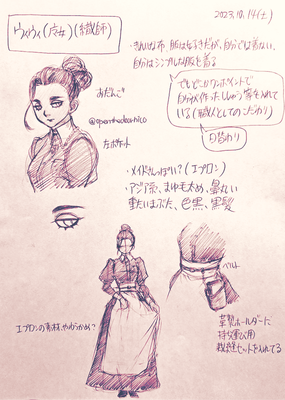 2023.10.14(土)
ヴィヴィ(次女)(織師)
・きれいな布、服は好きだが、自分では着ない。
自分はシンプルな服を着る
おだんご
でもどこかワンポイントで
自分が作ったししゅう等を入れて
いる(職人としてのこだわり)
日替わり
左ポケット
・メイドさんっぽい?(エプロン)
・アジア系、まゆ毛太め、
重たいまぶた、色黒、黒髪
ベルト
エプロンの素材、やわらかめ?
革製ホルダーに
持ち運び用
裁縫セットを入れてる